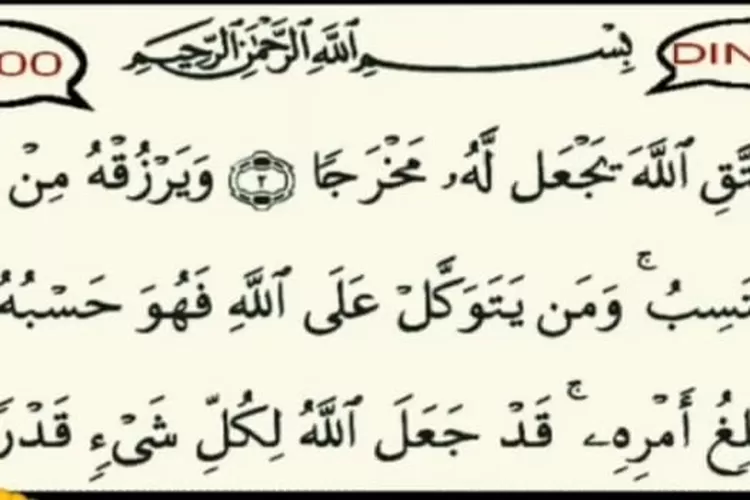 بِسْمِ ٱللَّهِ ٱلرَّحْمَٰنِ ٱلرَّحِيمِ
DIN
00
ٱللَّهَ يَجْعَل لَّهُۥ مَخْرَجًا ٢ وَيَرْزُقْهُ مِنْ
وَمَن يَتَوَكَّلْ عَلَى ٱللَّهِ فَهُوَ حَسْبُهُ
أَمْرِهِۦ ۚ قَدْ جَعَلَ ٱللَّهُ لِكُلِّ شَىْءٍ قَدْرً